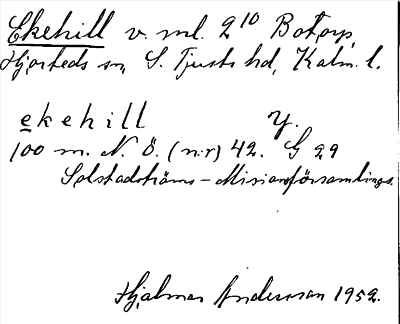 Ekehill v. ml. 2¹⁰ Botorp,
Hjorteds sn, S. Tjusts hd, Kalm. l.
ekehill y.
100 m. N. Ö. (nr) 42. G 29
Solstadströms-Missionsförsamlings.
Hjalmar Andersson 1952.